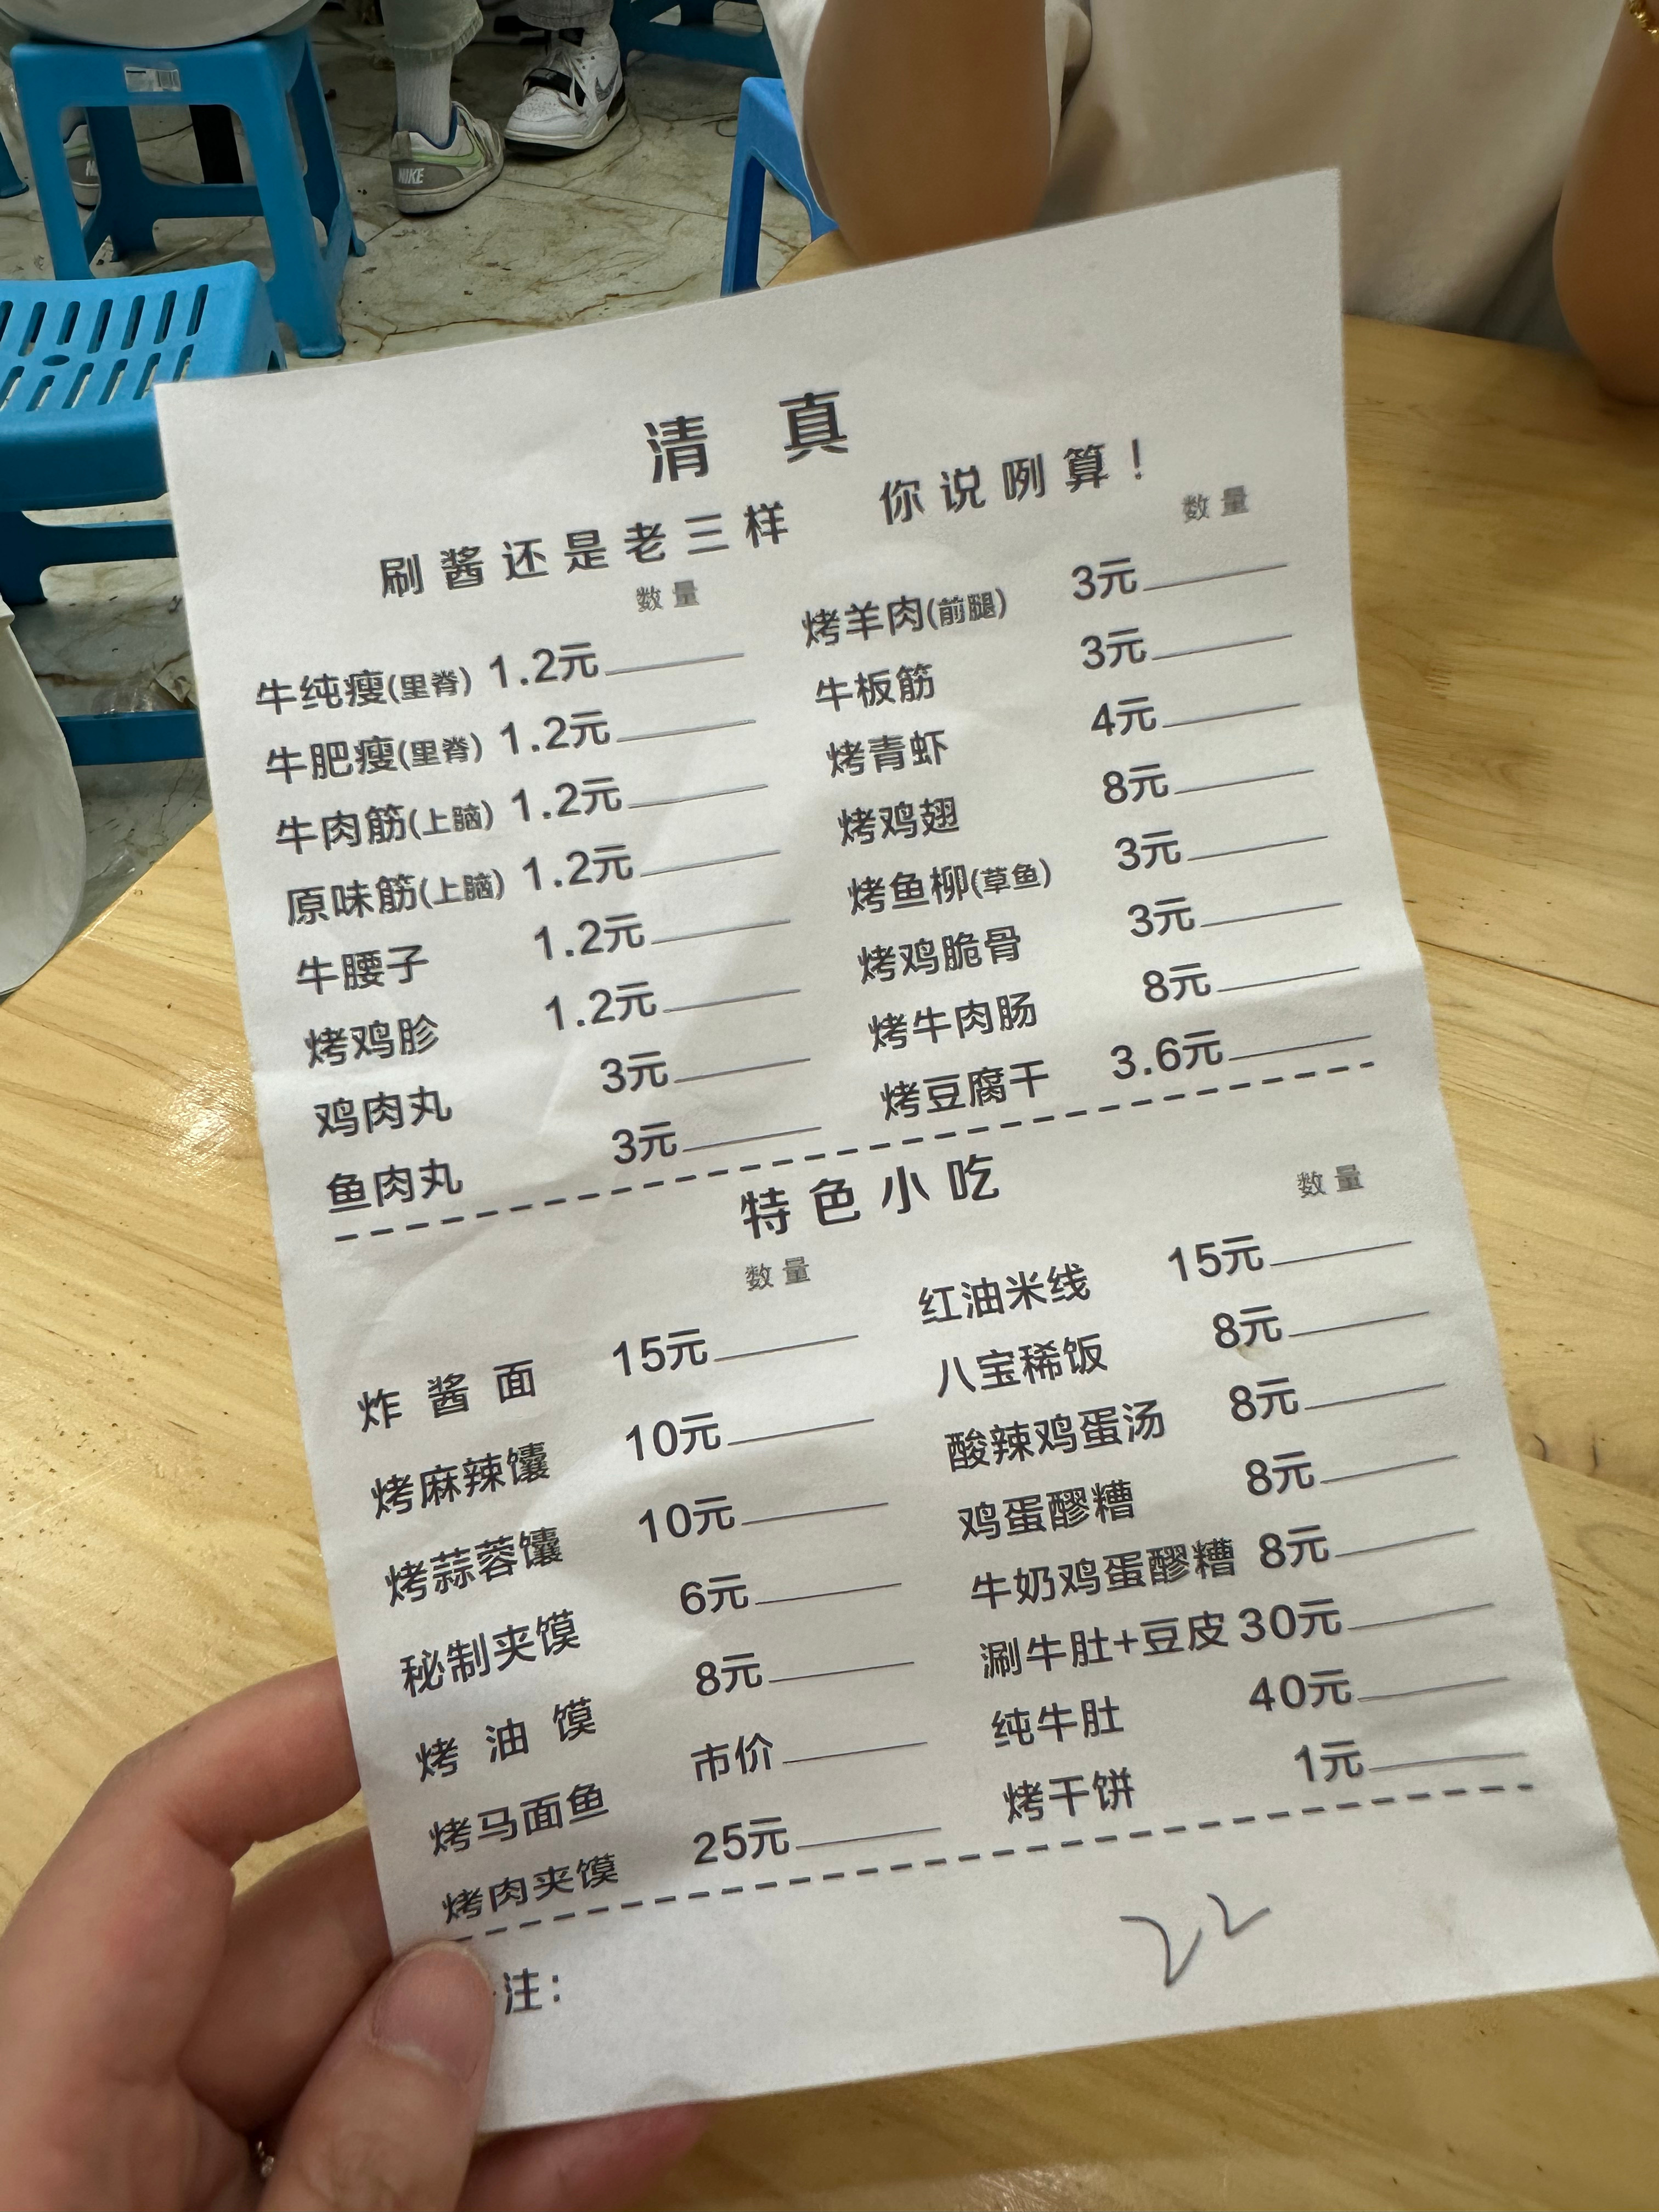 清 真
刷酱还是老三样 你说咧算！
数量
牛纯瘦(里脊) 1.2元
牛肥瘦(里脊) 1.2元
牛肉筋(上脑) 1.2元
原味筋(上脑) 1.2元
牛腰子 1.2元
烤鸡胗 1.2元
鸡肉丸 3元
鱼肉丸 3元
数量
烤羊肉(前腿) 3元
牛板筋 3元
烤青虾 4元
烤鸡翅 8元
烤鱼柳(草鱼) 3元
烤鸡脆骨 3元
烤牛肉肠 8元
烤豆腐干 3.6元
特色小吃
数量
炸酱面 15元
烤麻辣馕 10元
烤蒜蓉馕 10元
秘制夹馍 6元
烤油馍 8元
烤马面鱼 市价
烤肉夹馍 25元
数量
红油米线 15元
八宝稀饭 8元
酸辣鸡蛋汤 8元
鸡蛋醪糟 8元
牛奶鸡蛋醪糟 8元
涮牛肚+豆皮 30元
纯牛肚 40元
烤干饼 1元
注：
NIKE